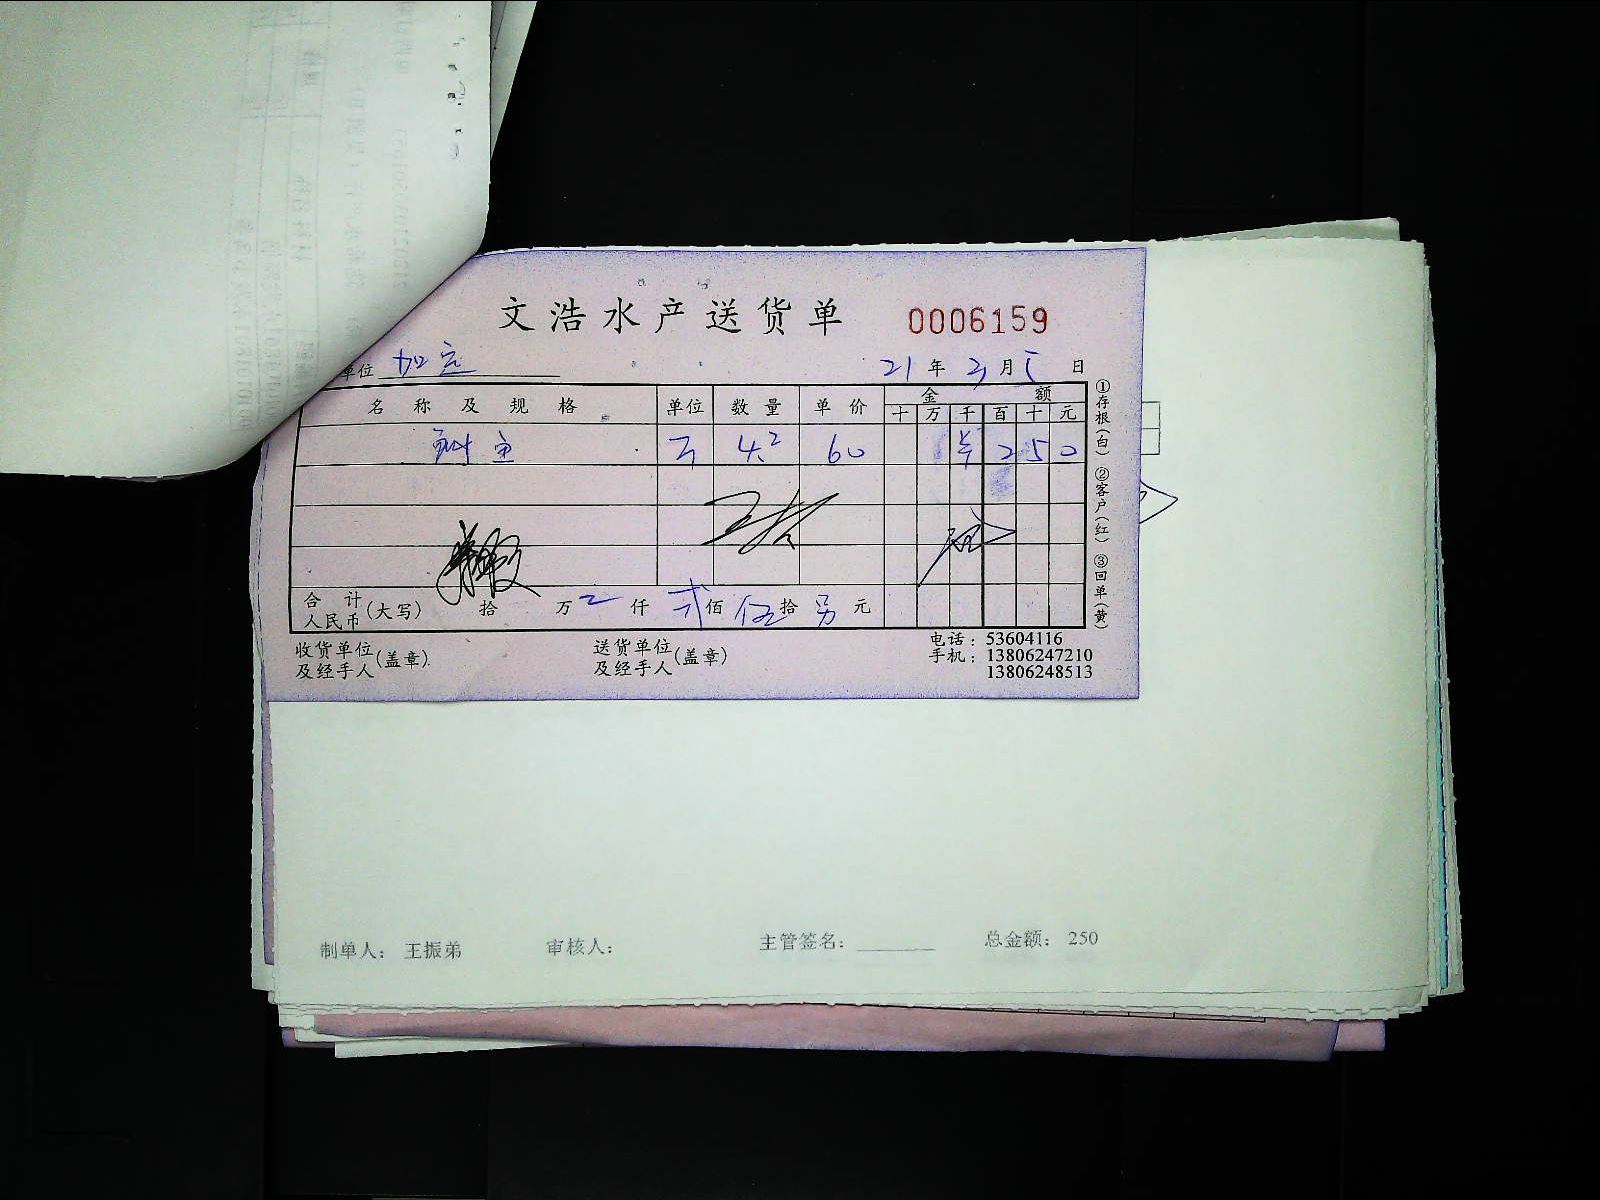 文浩水产送货单 0006159
单位 加定 21年3月5日
名称及规格 单位 数量 单价 金额
十 万 千 百 十 元
鱼 4.2 60 ¥ 2 5 0
合计人民币(大写) 拾 万 仟 贰佰 伍拾 另元
收货单位及经手人(盖章) 送货单位及经手人(盖章) 电话：53604116
手机：13806247210
13806248513
①存根(白) ②客户(红) ③回单(黄)
制单人： 王振弟 审核人： 主管签名： 总金额： 250